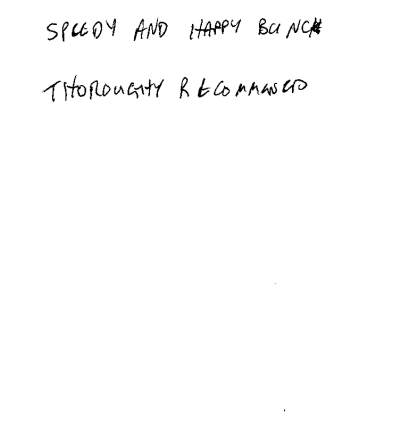 SPEEDY AND HAPPY BUNCH
THOROUGHLY RECOMMENDED